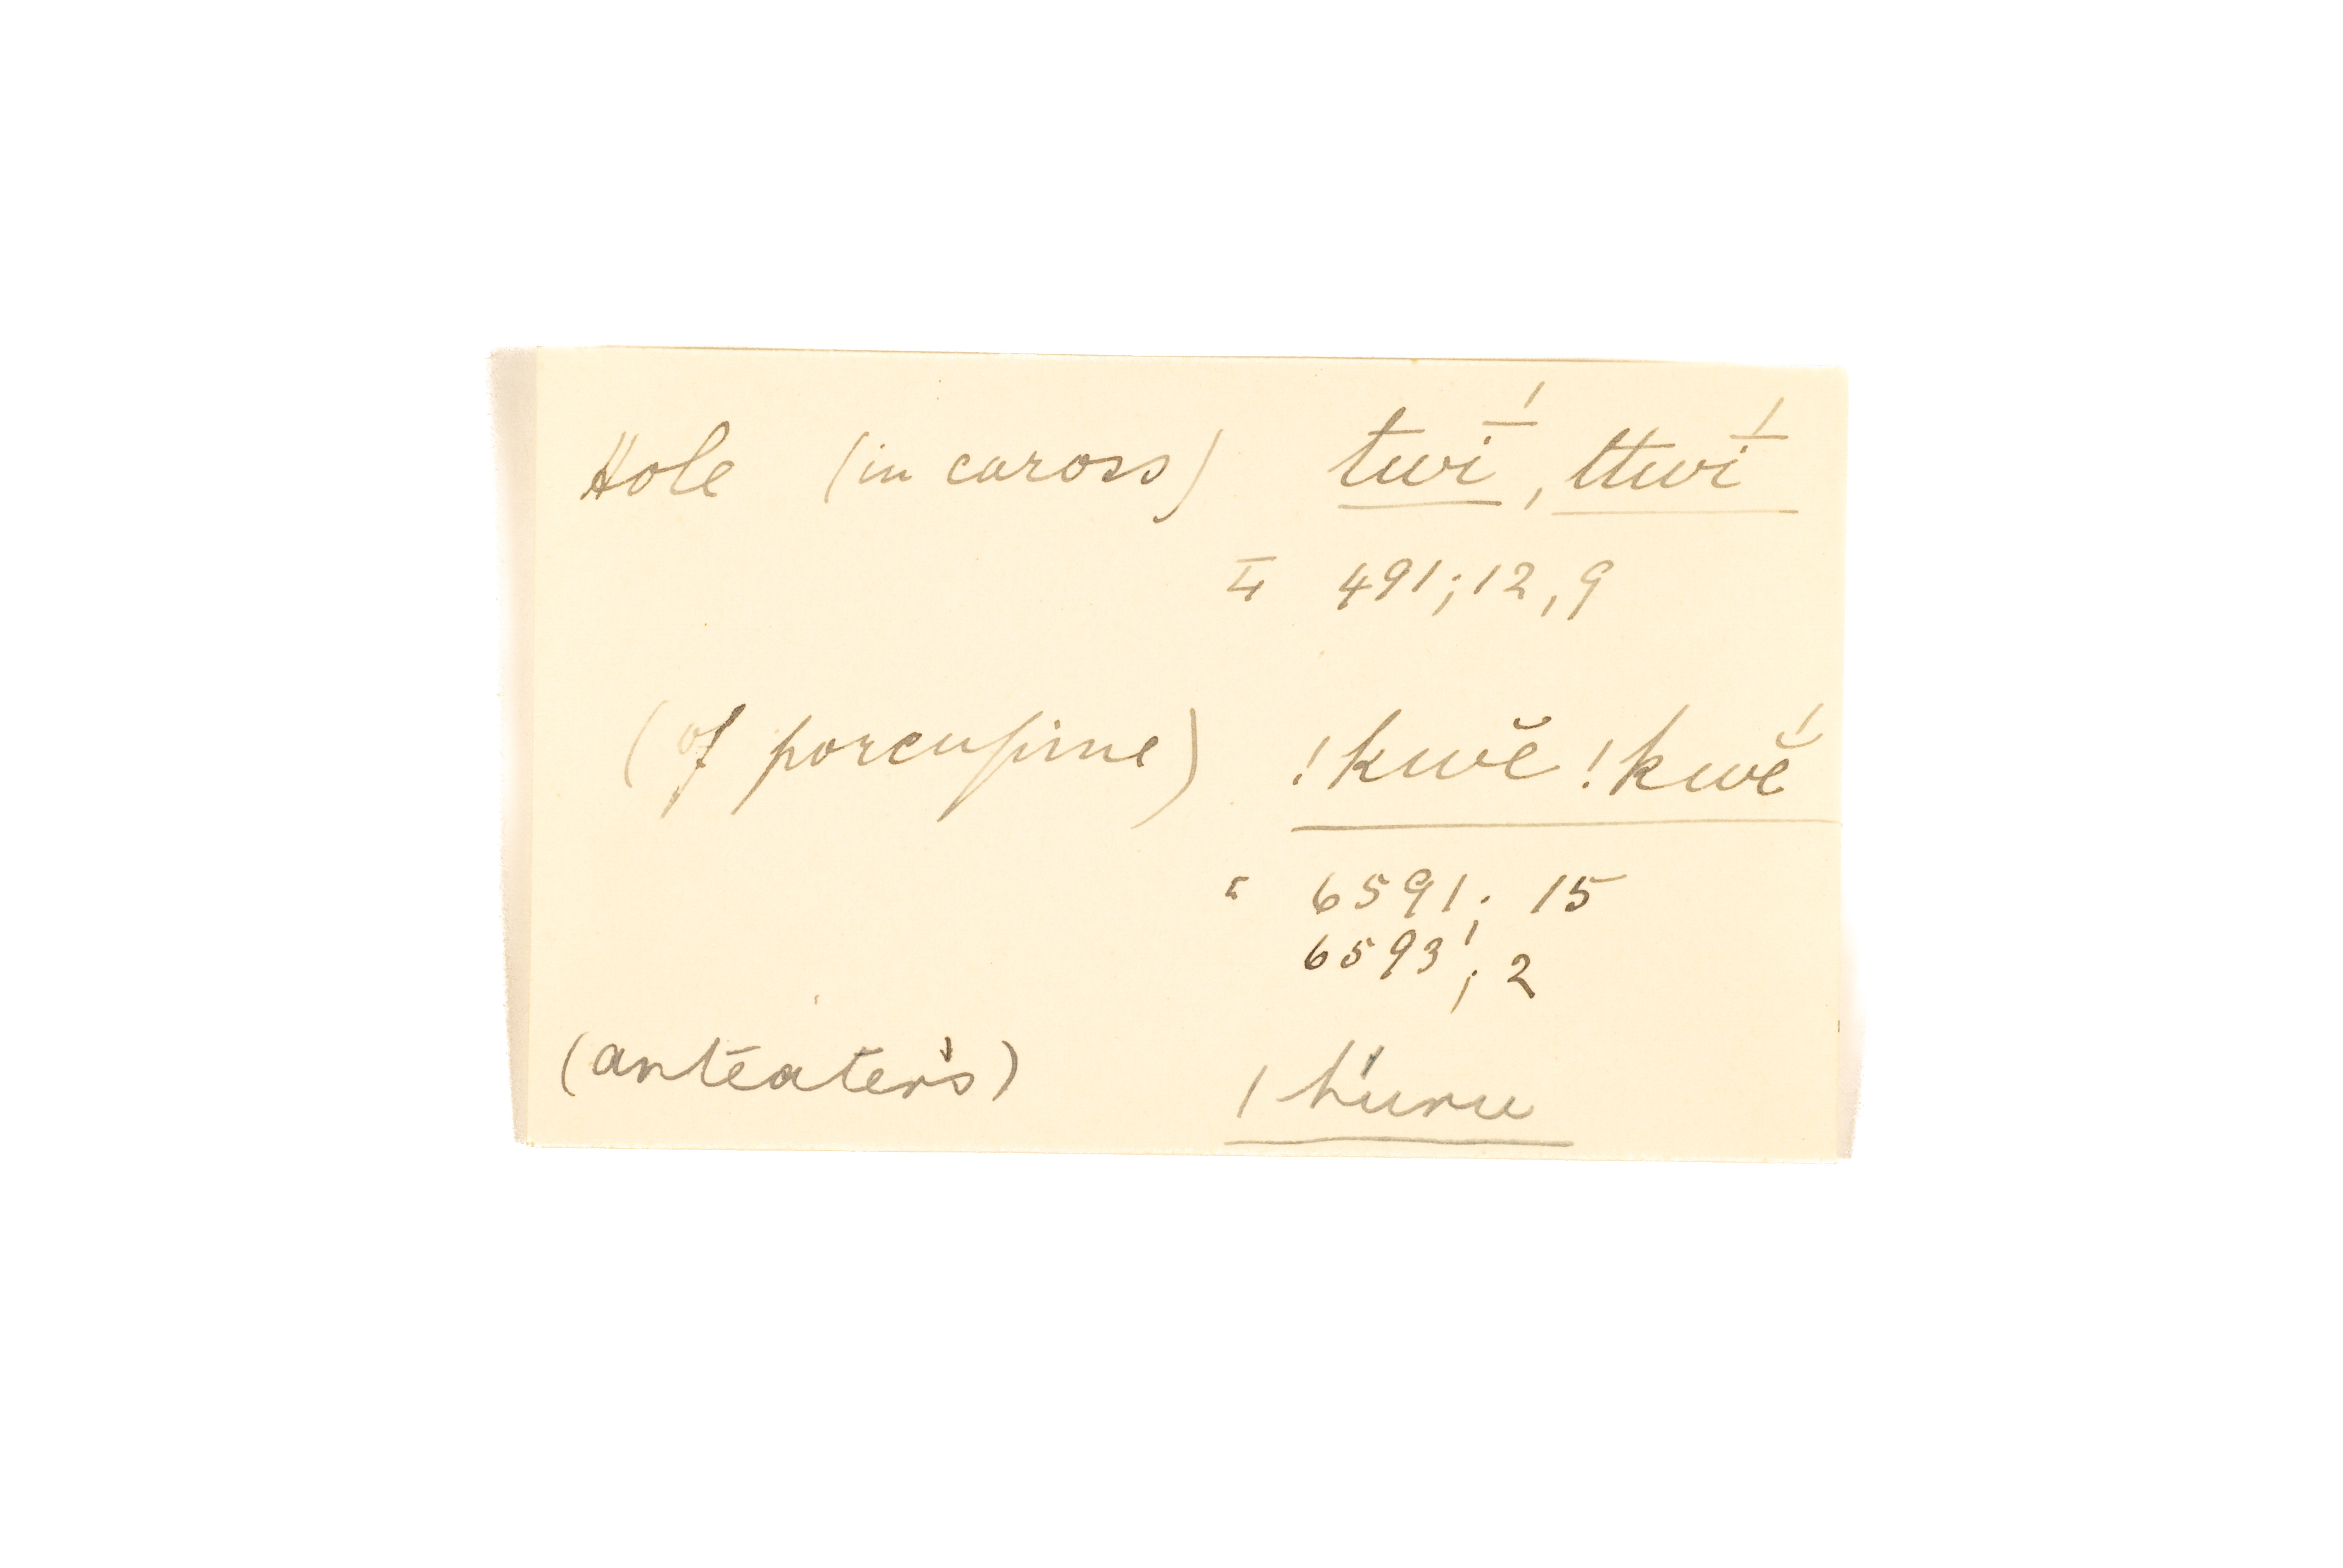 Hole (in caross) twī́, ttwī́
L 491; 12, 9
(of porcupine) !kwĕ !kwĕ́
L 6591; 15
6593; 2
(anteater's) ǀhúru